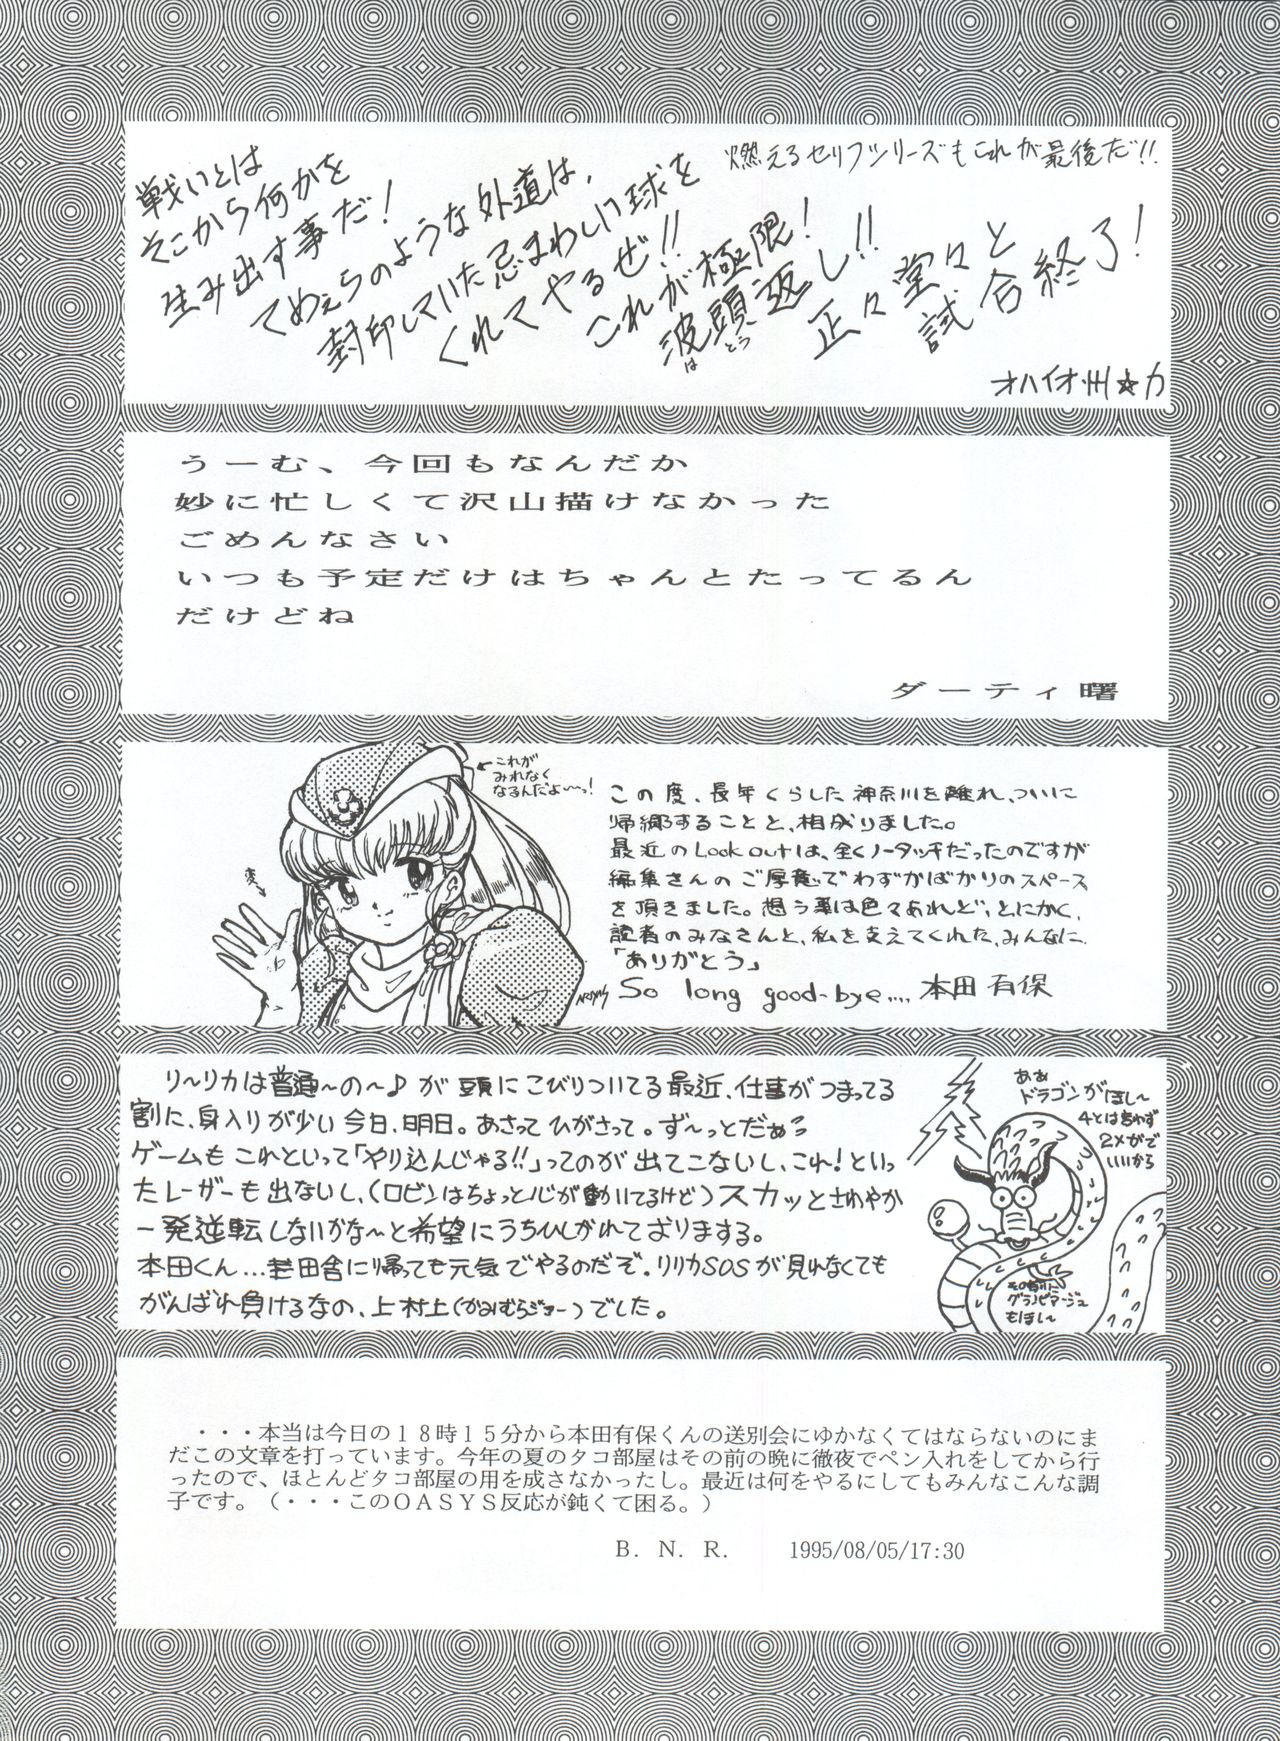 燃えるセリフシリーズもこれが最後だ!!
戦いとは
そこから何かを
生み出す事だ!
てめぇらのような外道は、
封印していた忌まわしい球を
くれてやるぜ!!
これが極限!
波頭返し!!
は とう
正々堂々と
試合終了!
オハイオ州☆カ
うーむ、今回もなんだか
妙に忙しくて沢山描けなかった
ごめんなさい
いつも予定だけはちゃんとたってるん
だけどね
ダーティ曙
←これが
みれなく
なるんだよ〜っ!
変
この度、長年くらした神奈川を離れ、ついに
帰郷することと、相成りました。
最近のLook outは、全くノータッチだったのですが
編集さんのご厚意でわずかばかりのスペース
を頂きました。想う事は色々あれど、とにかく、
読者のみなさんと、私を支えてくれた、みんなに、
「ありがとう」
So long good-bye.... 本田 有保
リ〜リカは普通〜の〜♪が頭にこびりついてる最近、仕事がつまってる
割に、身入りが少い今日、明日。あさってひがさって。ず〜っとだぁ
ゲームもこれといって「やり込んじゃる!!」ってのが出てこないし、これ!といっ
たレーザーも出ないし、(ロビンはちょっと心が動いてるけど)スカッとさわやか
一発逆転しないかな〜と希望にうちひしがれておりまする。
本田くん…田舎に帰っても元気でやるのだぞ。リリカSOSが見れなくても
がんばれ負けるなの、上村上(かみむらじょー)でした。
あぁ
ドラゴンがほし〜
4とは言わず
2×がで
いいから
グランビマージュ
もほし〜
・・・本当は今日の18時15分から本田有保くんの送別会にゆかなくてはならないのにま
だこの文章を打っています。今年の夏のタコ部屋はその前の晩に徹夜でペン入れをしてから行
ったので、ほとんどタコ部屋の用を成さなかったし。最近は何をやるにしてもみんなこんな調
子です。(・・・このOASYS反応が鈍くて困る。)
B. N. R. 1995/08/05/17:30